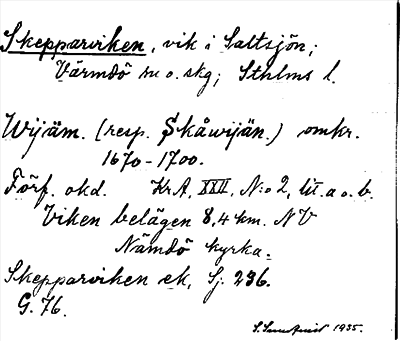 Skepparviken, vik i Saltsjön;
Värmdö sn o. skg; Sthlms l.
Wijäm. (resp. Skåwijän.) omkr.
1670-1700.
Förf. okd. KrA, XXII, N:o 2, lit. a o. b.
Viken belägen 8,4 km. NV
Nämdö kyrka.
Skepparviken ek, Sj. 236.
G. 76.
1935.